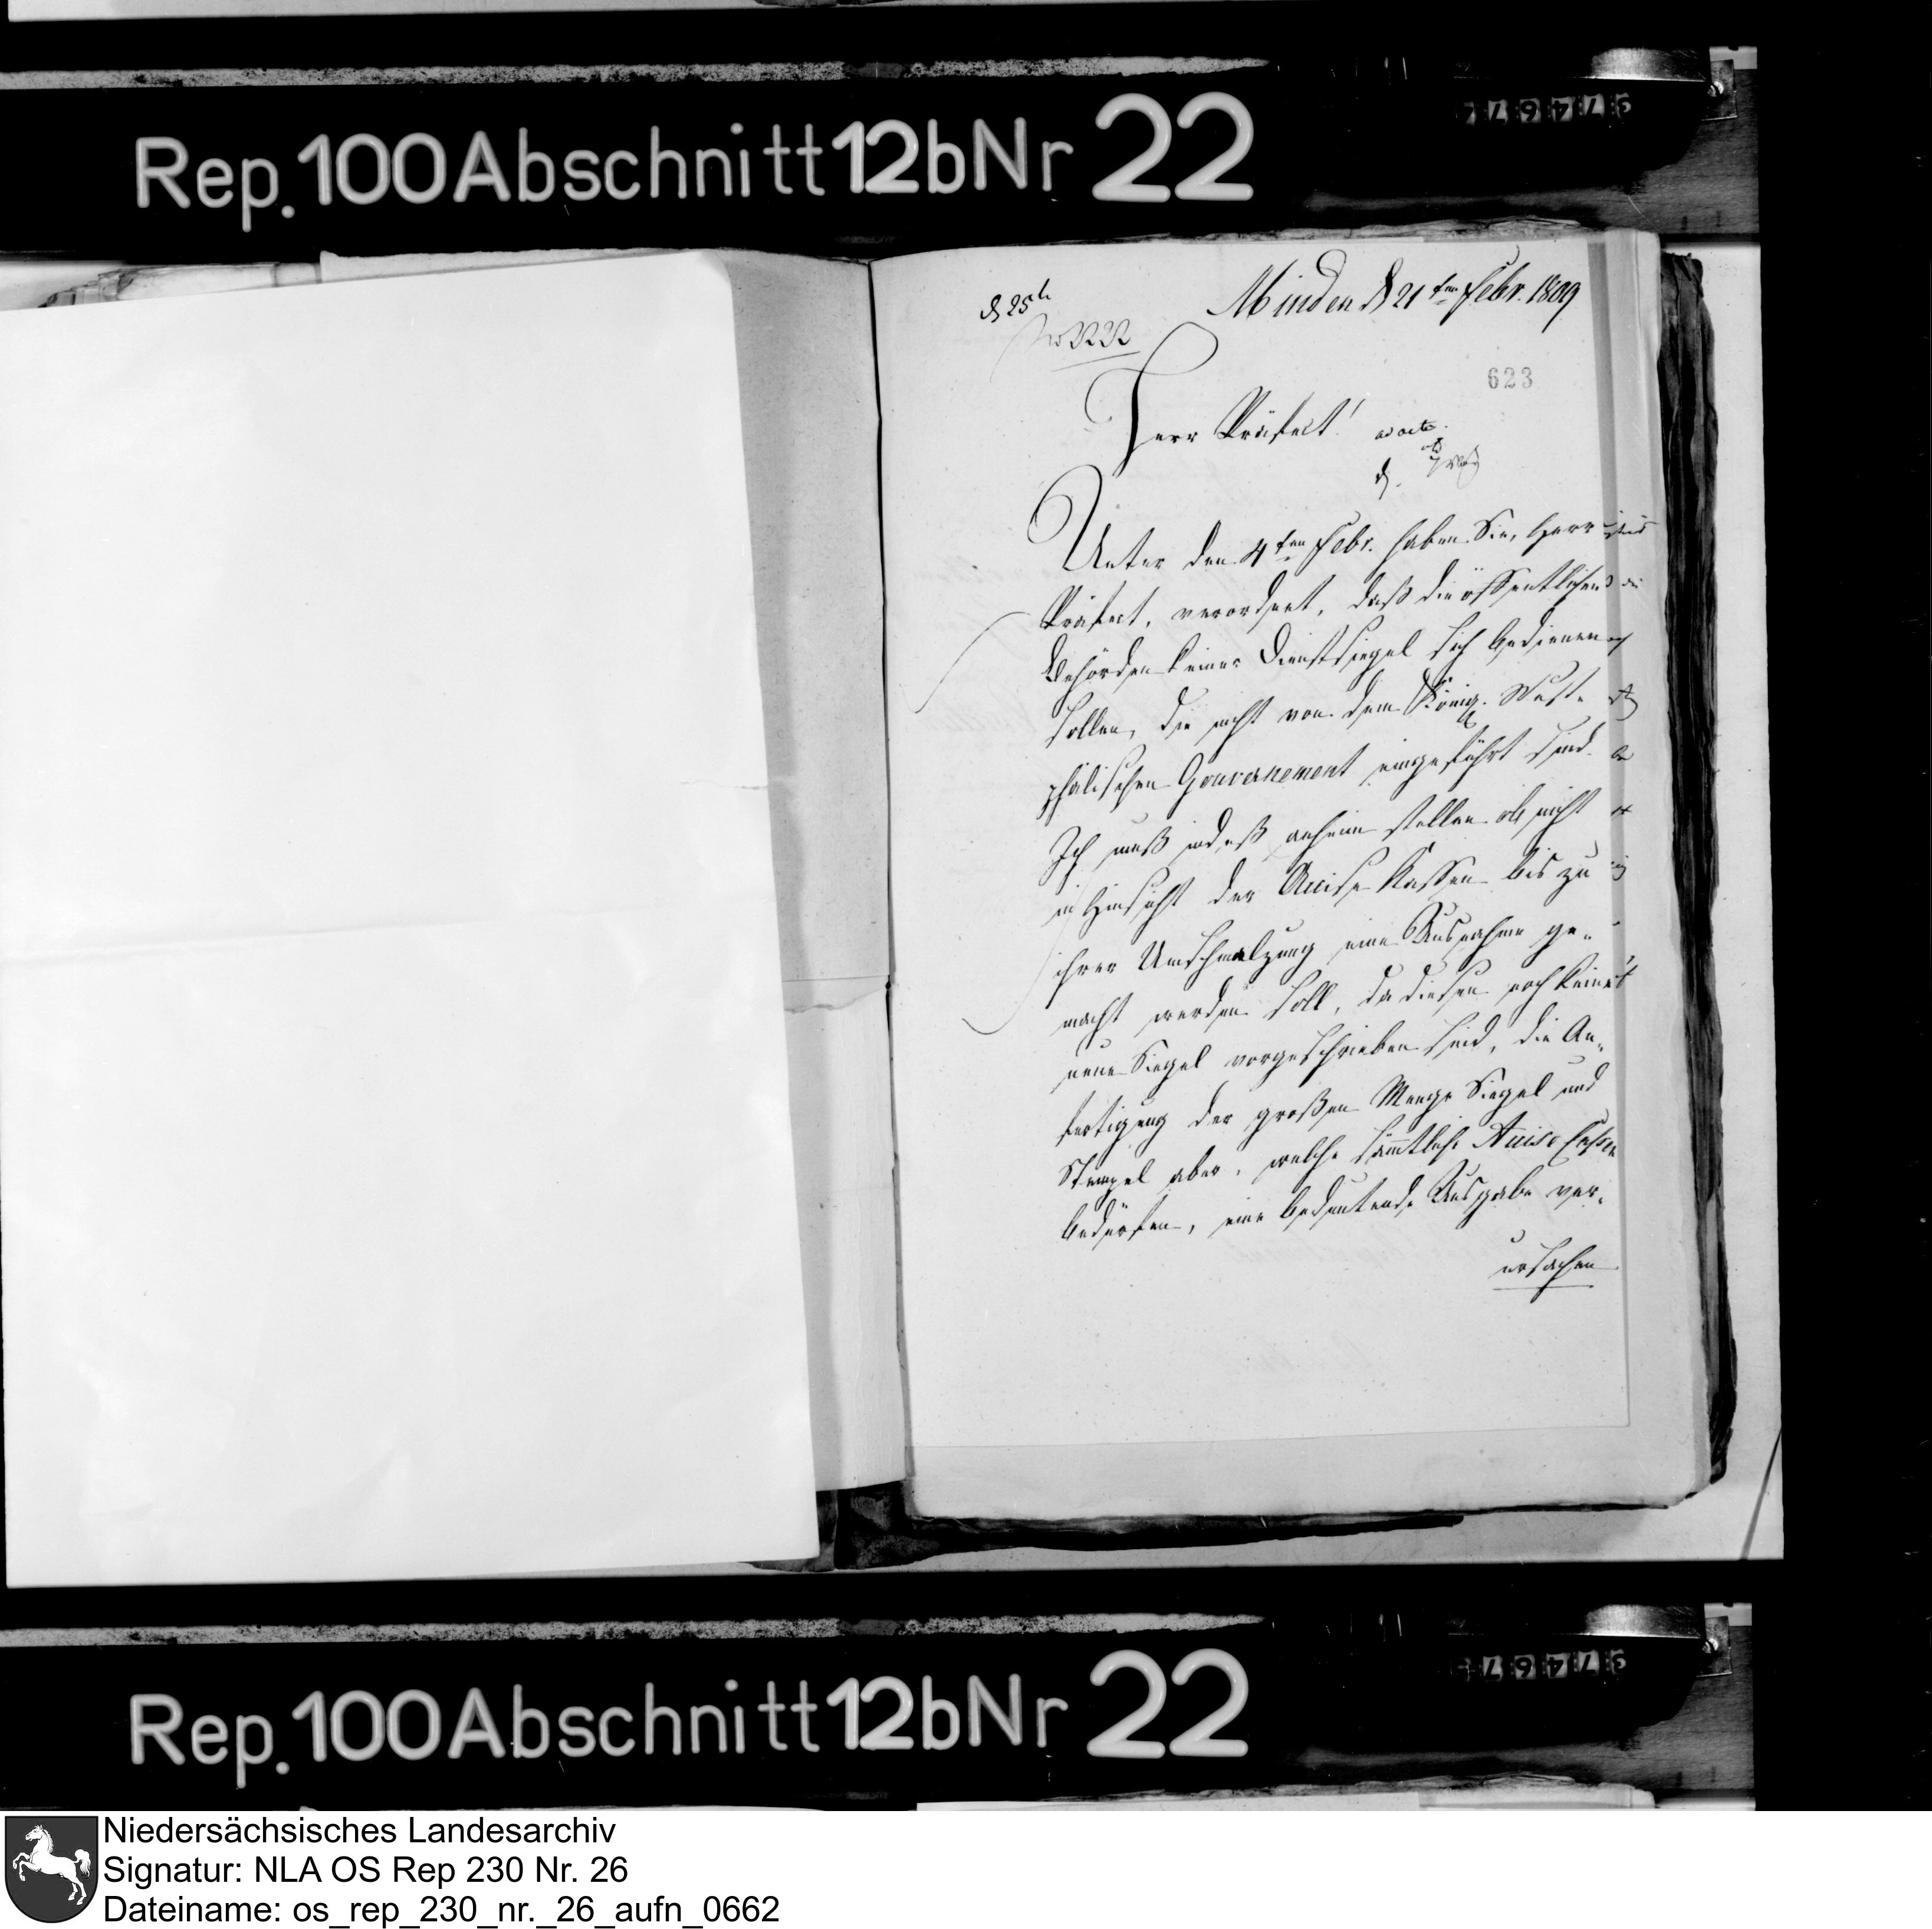 Rep. 100 Abschnitt 12b Nr 22
Minden d 21ten Febr. 1809
d 25t
623
Herr Präfect!
ad acta.
Unter den 4ten Febr. haben Sie, Herr
Präfect, verordnet, daß die öffentlichen
Behörden keiner Dienstsiegel sich bedienen
sollen, die nicht von dem Königl. West-
phälischen Gouvernement eingeführt sind.
Ich muß indeß anheim stellen ob nicht
in Hinsicht der Accise Kassen bis zu
ihrer Umschmelzung eine Ausnahme ge-
macht werden soll, da diesen noch keine
neue Siegel vorgeschrieben sind, die An-
fertigung der großen Menge Siegel und
Stempel aber, welche sämmtliche Accise Cassen
bedürfen, eine bedeutende Ausgabe ver-
ursachen
Rep. 100 Abschnitt 12b Nr 22
Niedersächsisches Landesarchiv
Signatur: NLA OS Rep 230 Nr. 26
Dateiname: os_rep_230_nr._26_aufn_0662